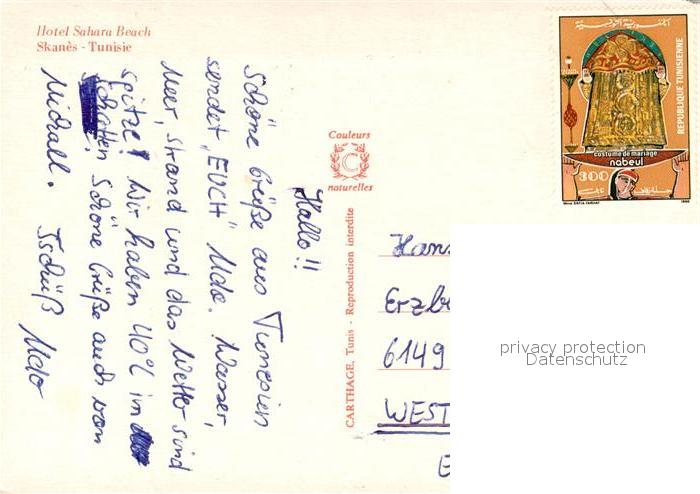 Hotel Sahara Beach
Skanès - Tunisie
Hallo!!
Schöne Grüße aus Tunesien
sendet "EUCH" Udo. Wasser,
Meer, Strand und das Wetter sind
spitze! Wir haben 40°C im
Schatten. Schöne Grüße auch von
Michall. Tschüß Udo
Couleurs
C
naturelles
CARTHAGE, Tunis - Reproduction interdite
الجمهورية التونسية
REPUBLIQUE TUNISIENNE
costume de mariage
nabeul
300
1986
Hans
Erzb
6149
WEST
privacy protection
Datenschutz